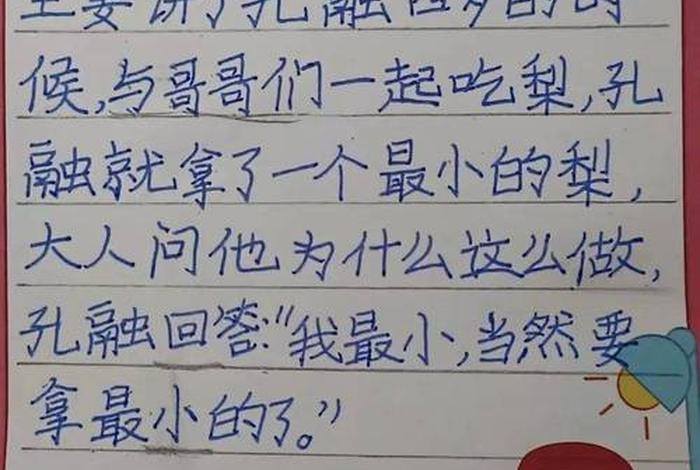 主要讲了孔融四岁的时
候,与哥哥们一起吃梨,孔
融就拿了一个最小的梨,
大人问他为什么这么做,
孔融回答:“我最小,当然要
拿最小的了。”